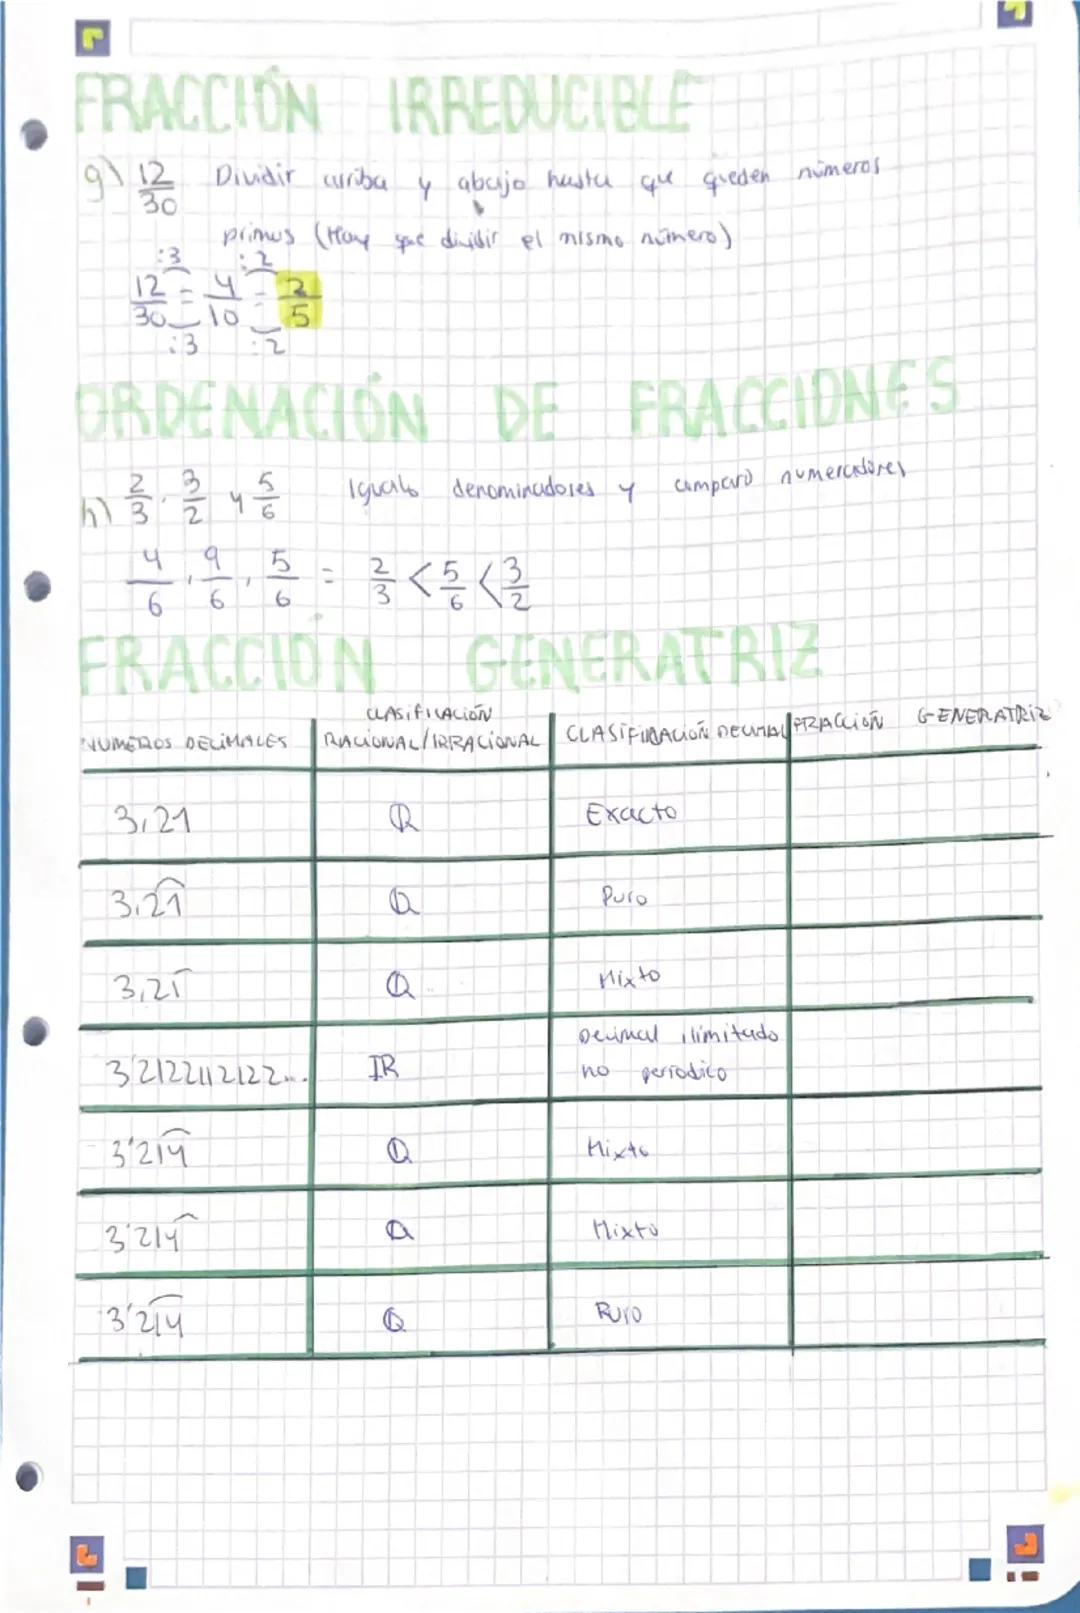 FRACCIÓN IRREDUCIBLE
g) 12/30 Dividir arriba y abajo hasta que queden números
primos (Hay que dividir el mismo número)
:3 :2
12/30 = 4/10 = 2/5
:3 :2
ORDENACIÓN DE FRACCIONES
h) 2/3, 3/2 y 5/6 Igualo denominadores y comparo numeradores
4/6, 9/6, 5/6 = 2/3 < 5/6 < 3/2
FRACCIÓN GENERATRIZ
NUMEROS DECIMALES CLASIFICACIÓN RACIONAL/IRRACIONAL CLASIFICACIÓN DECIMAL FRACCIÓN GENERATRIZ
3,21 Q Exacto
3,2͡1 Q Puro
3,21̄ Q Mixto
3'2122112122... IR Decimal ilimitado
no periodico
3'21͡4 Q Mixto
3'214̂ Q Mixto
3'2͡14 Q Puro